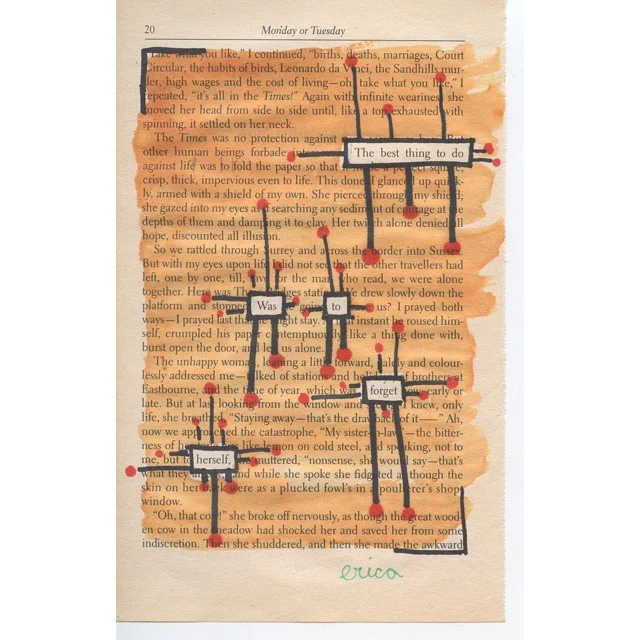 20
Monday or Tuesday
Take what you like," I continued, "births, deaths, marriages, Court
Circular, the habits of birds, Leonardo da Vinci, the Sandhills mur-
der, high wages and the cost of living—oh, take what you like," I
repeated, "it's all in the Times!" Again with infinite weariness she
moved her head from side to side until, like a top exhausted with
spinning, it settled on her neck.
The Times was no protection against But
other human beings forbade
The best thing to do
against life was to fold the paper so that a perfect square,
crisp, thick, impervious even to life. This done, I glanced up quick-
ly, armed with a shield of my own. She pierced through my shield;
she gazed into my eyes as if searching any sediment of courage at the
depths of them and damping it to clay. Her twitch alone denied all
hope, discounted all illusion.
So we rattled through Surrey and across the border into Sussex.
But with my eyes upon life I did not see that the other travellers had
left, one by one, till, save for the man who read, we were alone
together. Here was Three Bridges station. We drew slowly down the
platform and stopped. Was going to us? I prayed both
ways—I prayed last that might stay. that instant he roused him-
self, crumpled his paper contemptuously, like a thing done with,
burst open the door, and left us alone.
The unhappy woman, leaning a little forward, palely and colour-
lessly addressed me—talked of stations and of brothers at
Eastbourne, and the time of year, which was forget early or
late. But at last looking from the window and I knew, only
life, she breathed, "Staying away—that's the drawback of it——" Ah,
now we approached the catastrophe, "My sister-in-law"—the bitter-
ness of her like lemon on cold steel, and speaking, not to
me, but to herself, she muttered, "nonsense, she would say—that's
what they all and while she spoke she fidgeted as though the
skin on her back were as a plucked fowl's in a poulterer's shop-
window.
"Oh, that cow!" she broke off nervously, as though the great wood-
en cow in the meadow had shocked her and saved her from some
indiscretion. Then she shuddered, and then she made the awkward
erica